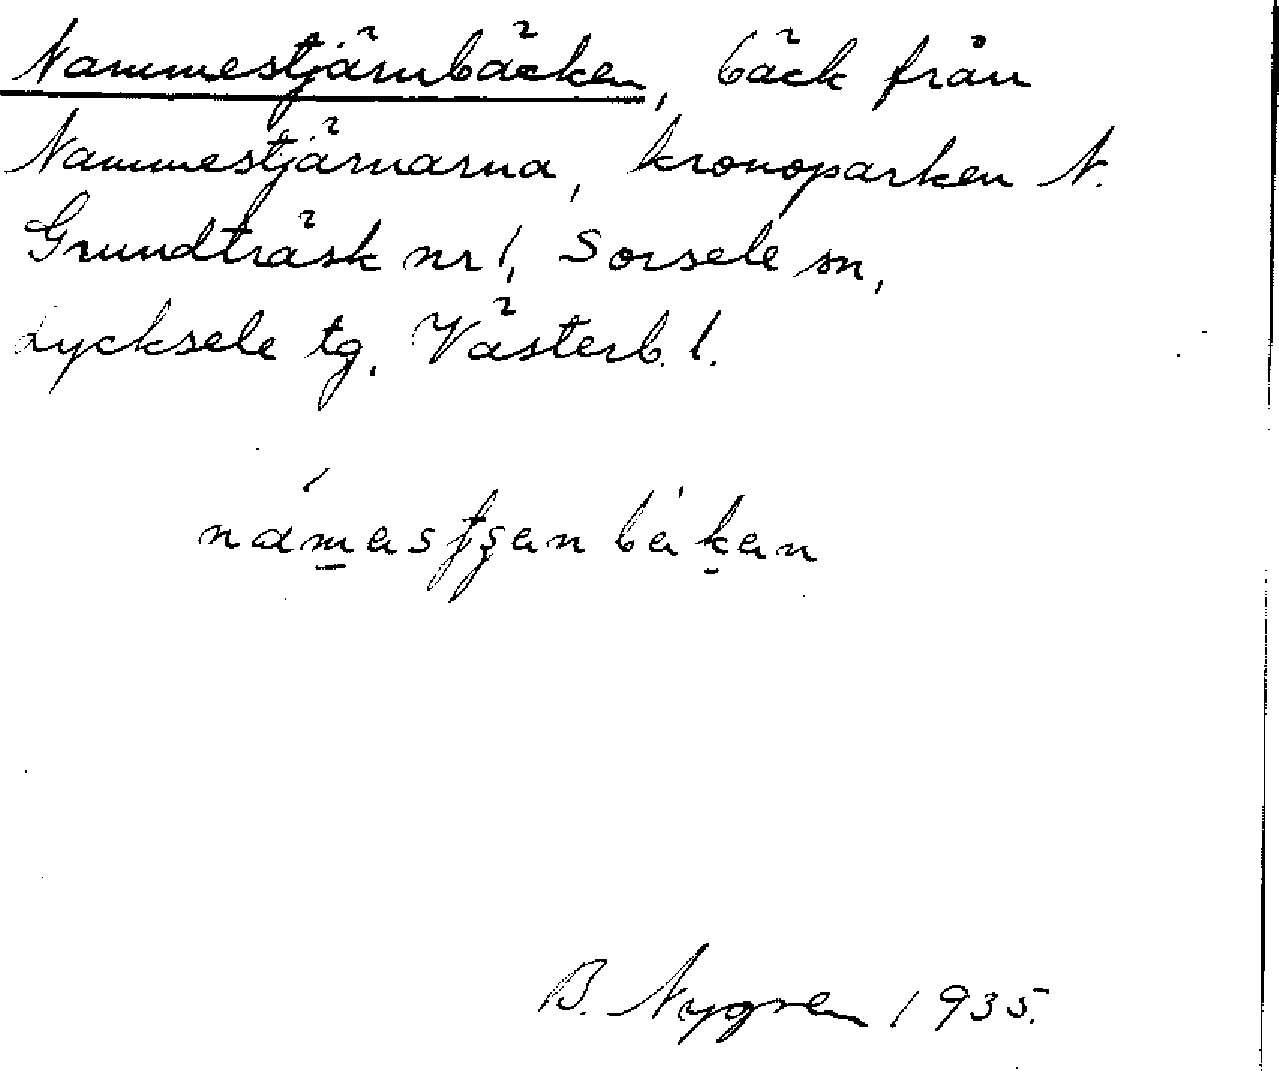 Nammestjärnbäcken, bäck från
Nammestjärnarna, kronoparken N.
Grundträsk nr 1, Sorsele sn,
Lycksele tg, Västerb. l.
B. Nygren 1935.